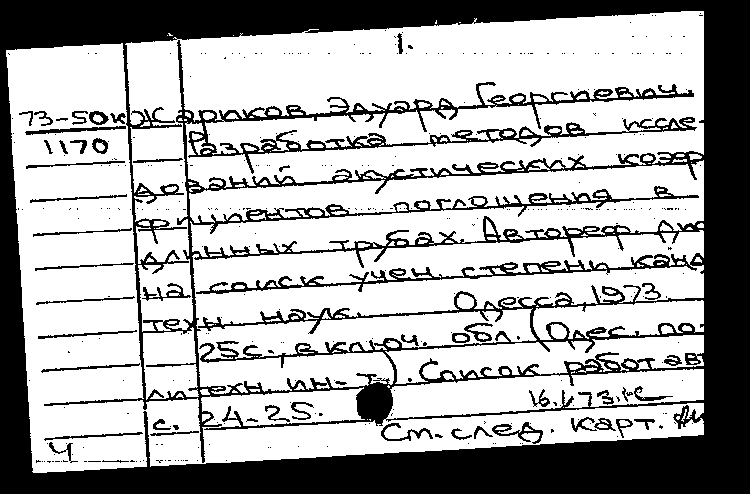 1.
73-50к Жариков, Эдуард Георгиевич.
1170 Разработка методов иссле-
дований акустических коэф
фициентов поглощения в
длинных трубах. Автореф. дис
на соиск учен. степени канд
техн. наук. Одесса, 1973.
25с., включ. обл. (Одес. по-
литехн. ин-т). Список работ авт
с. 24-25.
Ч См. след. карт.